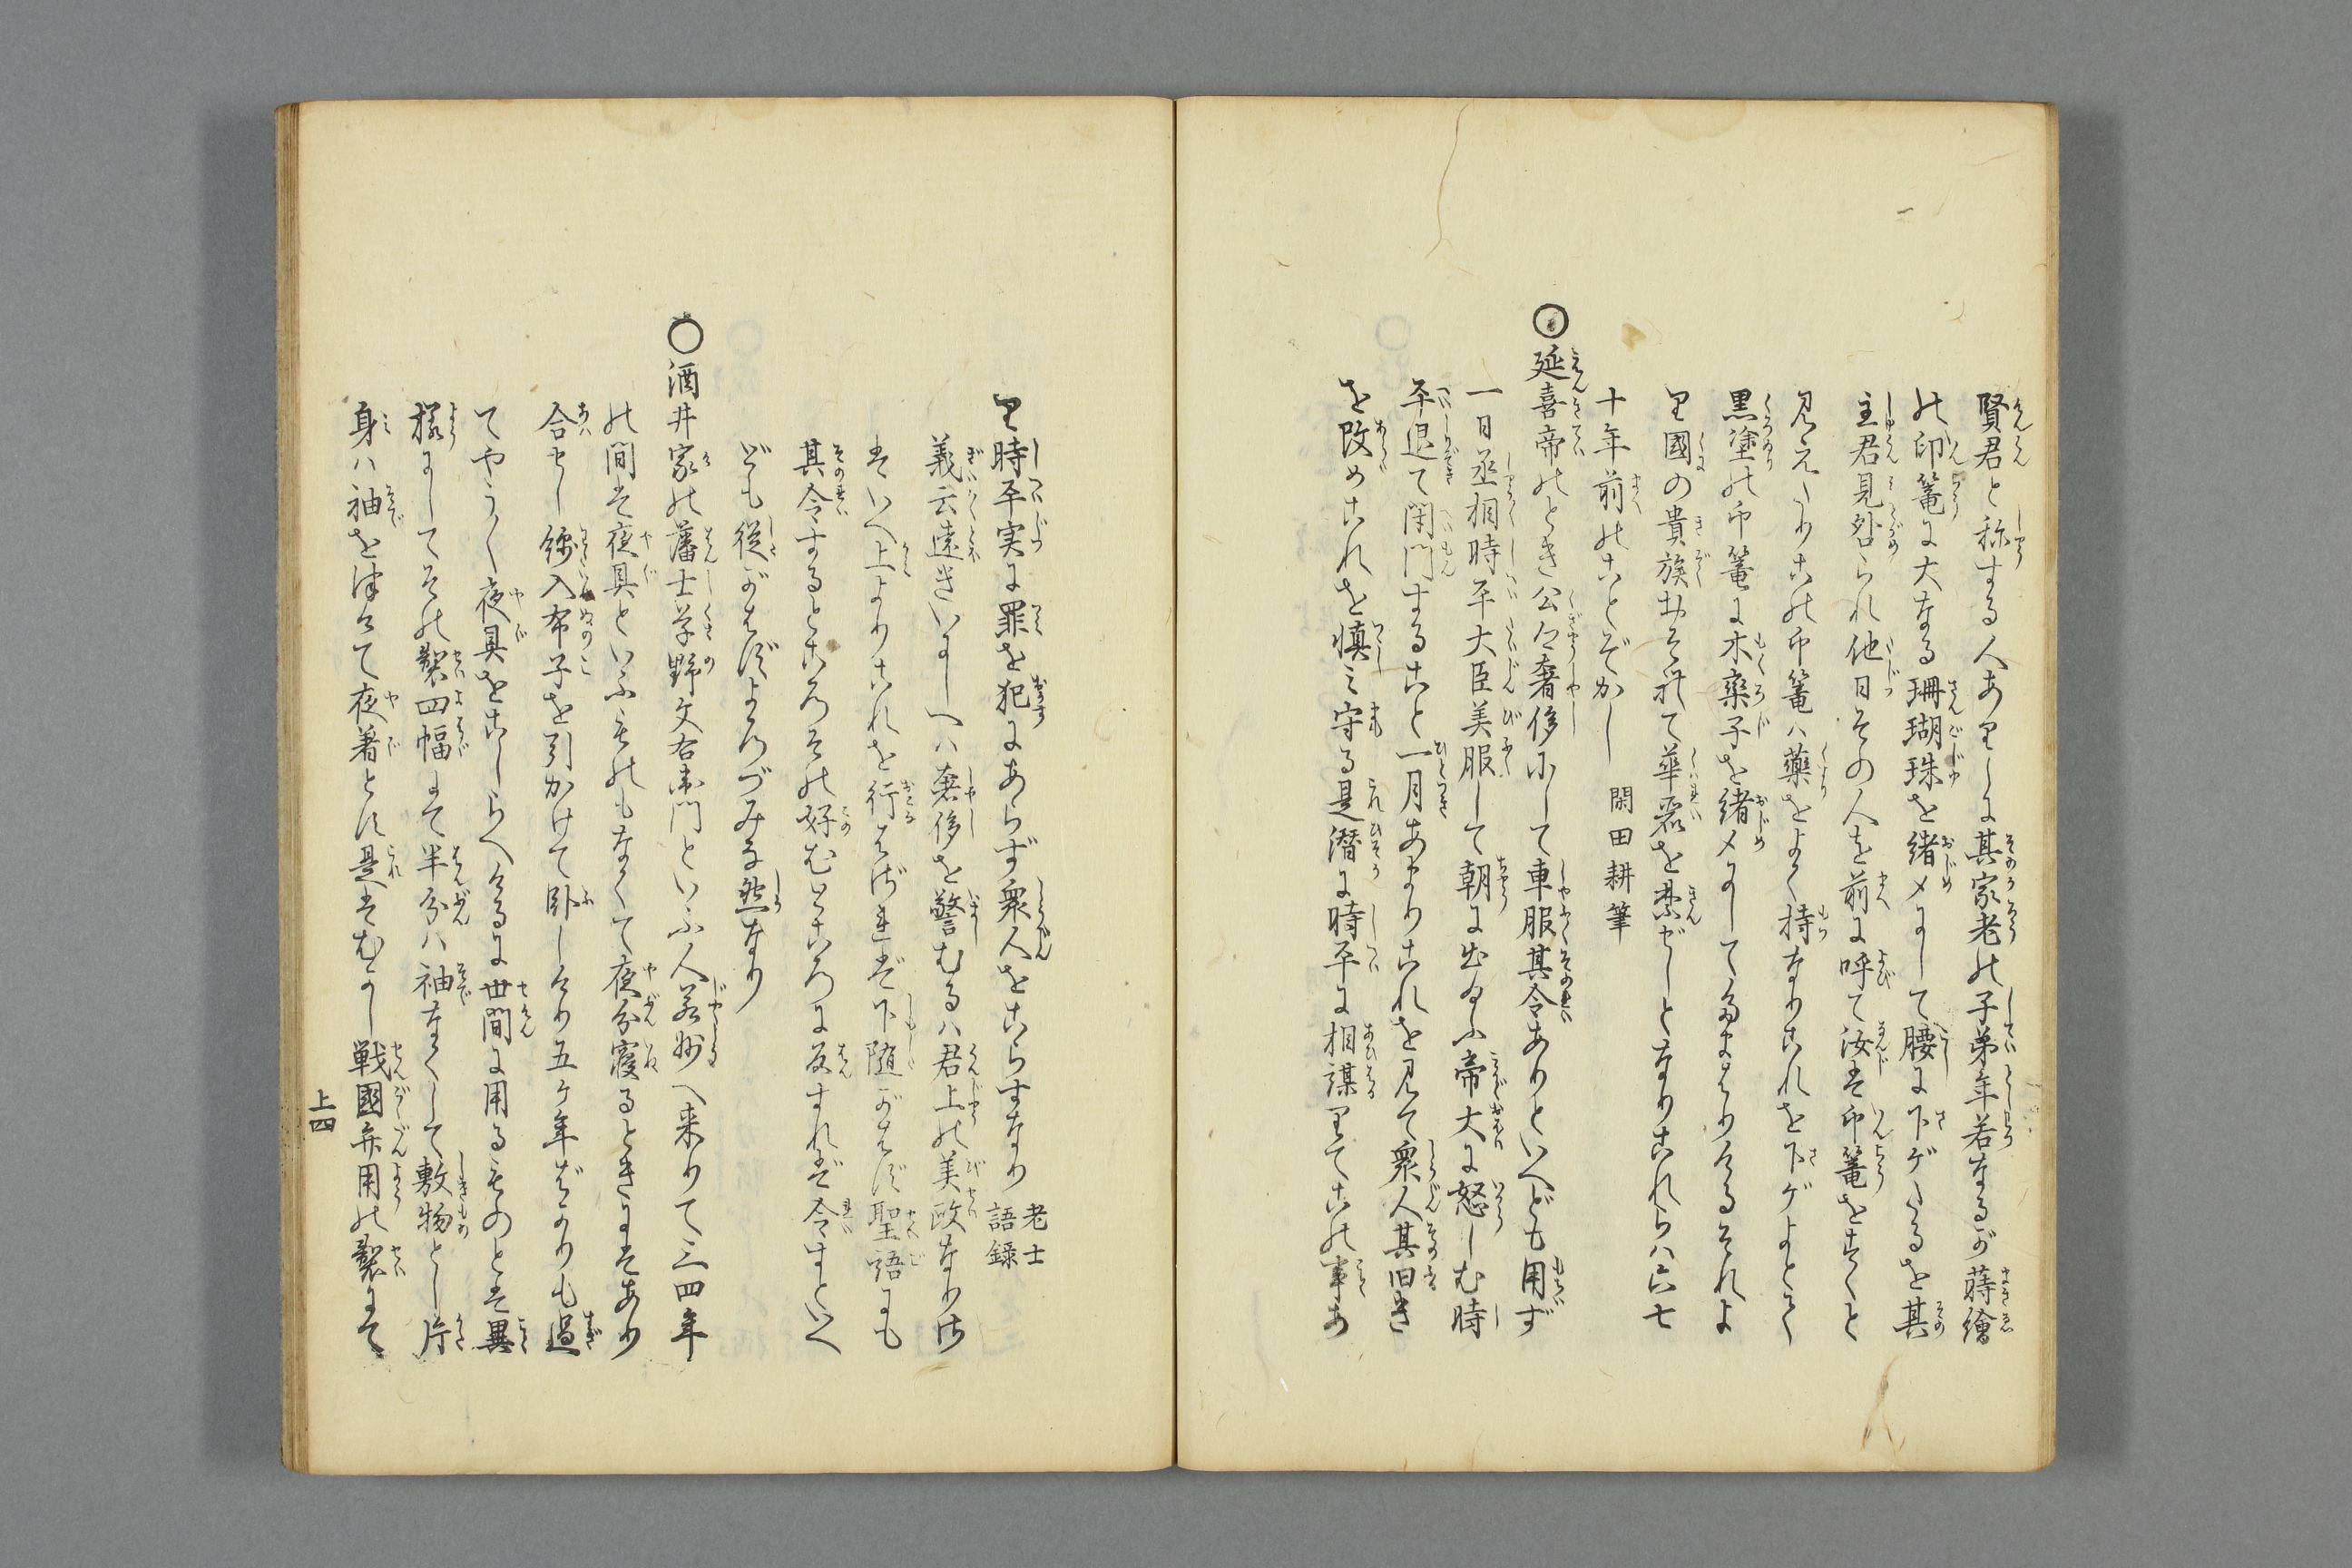 賢君と称する人ありしに其家老の子弟年若なるが蒔繪
の印篭に大なる珊瑚珠を緒〆にして腰に下ゲたるを其
主君見咎られ他日その人を前に呼て汝は印篭をすくと
見えたりこの印篭ハ薬をよく持なりこれを下ゲよとて
黒塗の印篭に木欒子を緒〆にしてたまはりけるそれよ
り國の貴族おそれて華麗を禁ぜしとなりこれらハ六七
十年前のことぞかし 閑田耕筆
◯延喜帝のとき公卿奢侈にして車服其令ありといへども用ず
一日丞相時平大臣美服して朝に出給ふ帝大に怒しむ時
平退て閉門すること一月あまりこれを見て衆人其旧き
を改めこれを慎み守る是潜に時平に相謀りてこの事あ
り時平実に罪を犯にあらず衆人をこらすなり 老士語録
義云遠きいにしへハ奢侈を警むるハ君上の美政なりさ
はいへ上よりこれを行はざれば下随がはず聖語にも
其令するところその好むところに反すれば令すといへ
ども従がはずよろづみな然なり
◯酒井家の藩士草野文右衛門といふ人若州へ来りて三四年
の間は夜具といふものもなくて夜分寝るときにはあり
合せし綿入布子を引かけて臥しけり五ケ年ばかりも過
てやうく夜具をこしらへけるに世間に用るものとは異
様にしてその製四幅にて半分ハ袖なくして敷物とし片
身ハ袖をつけて夜着とす是はむかし戦國弁用の製にて
上四